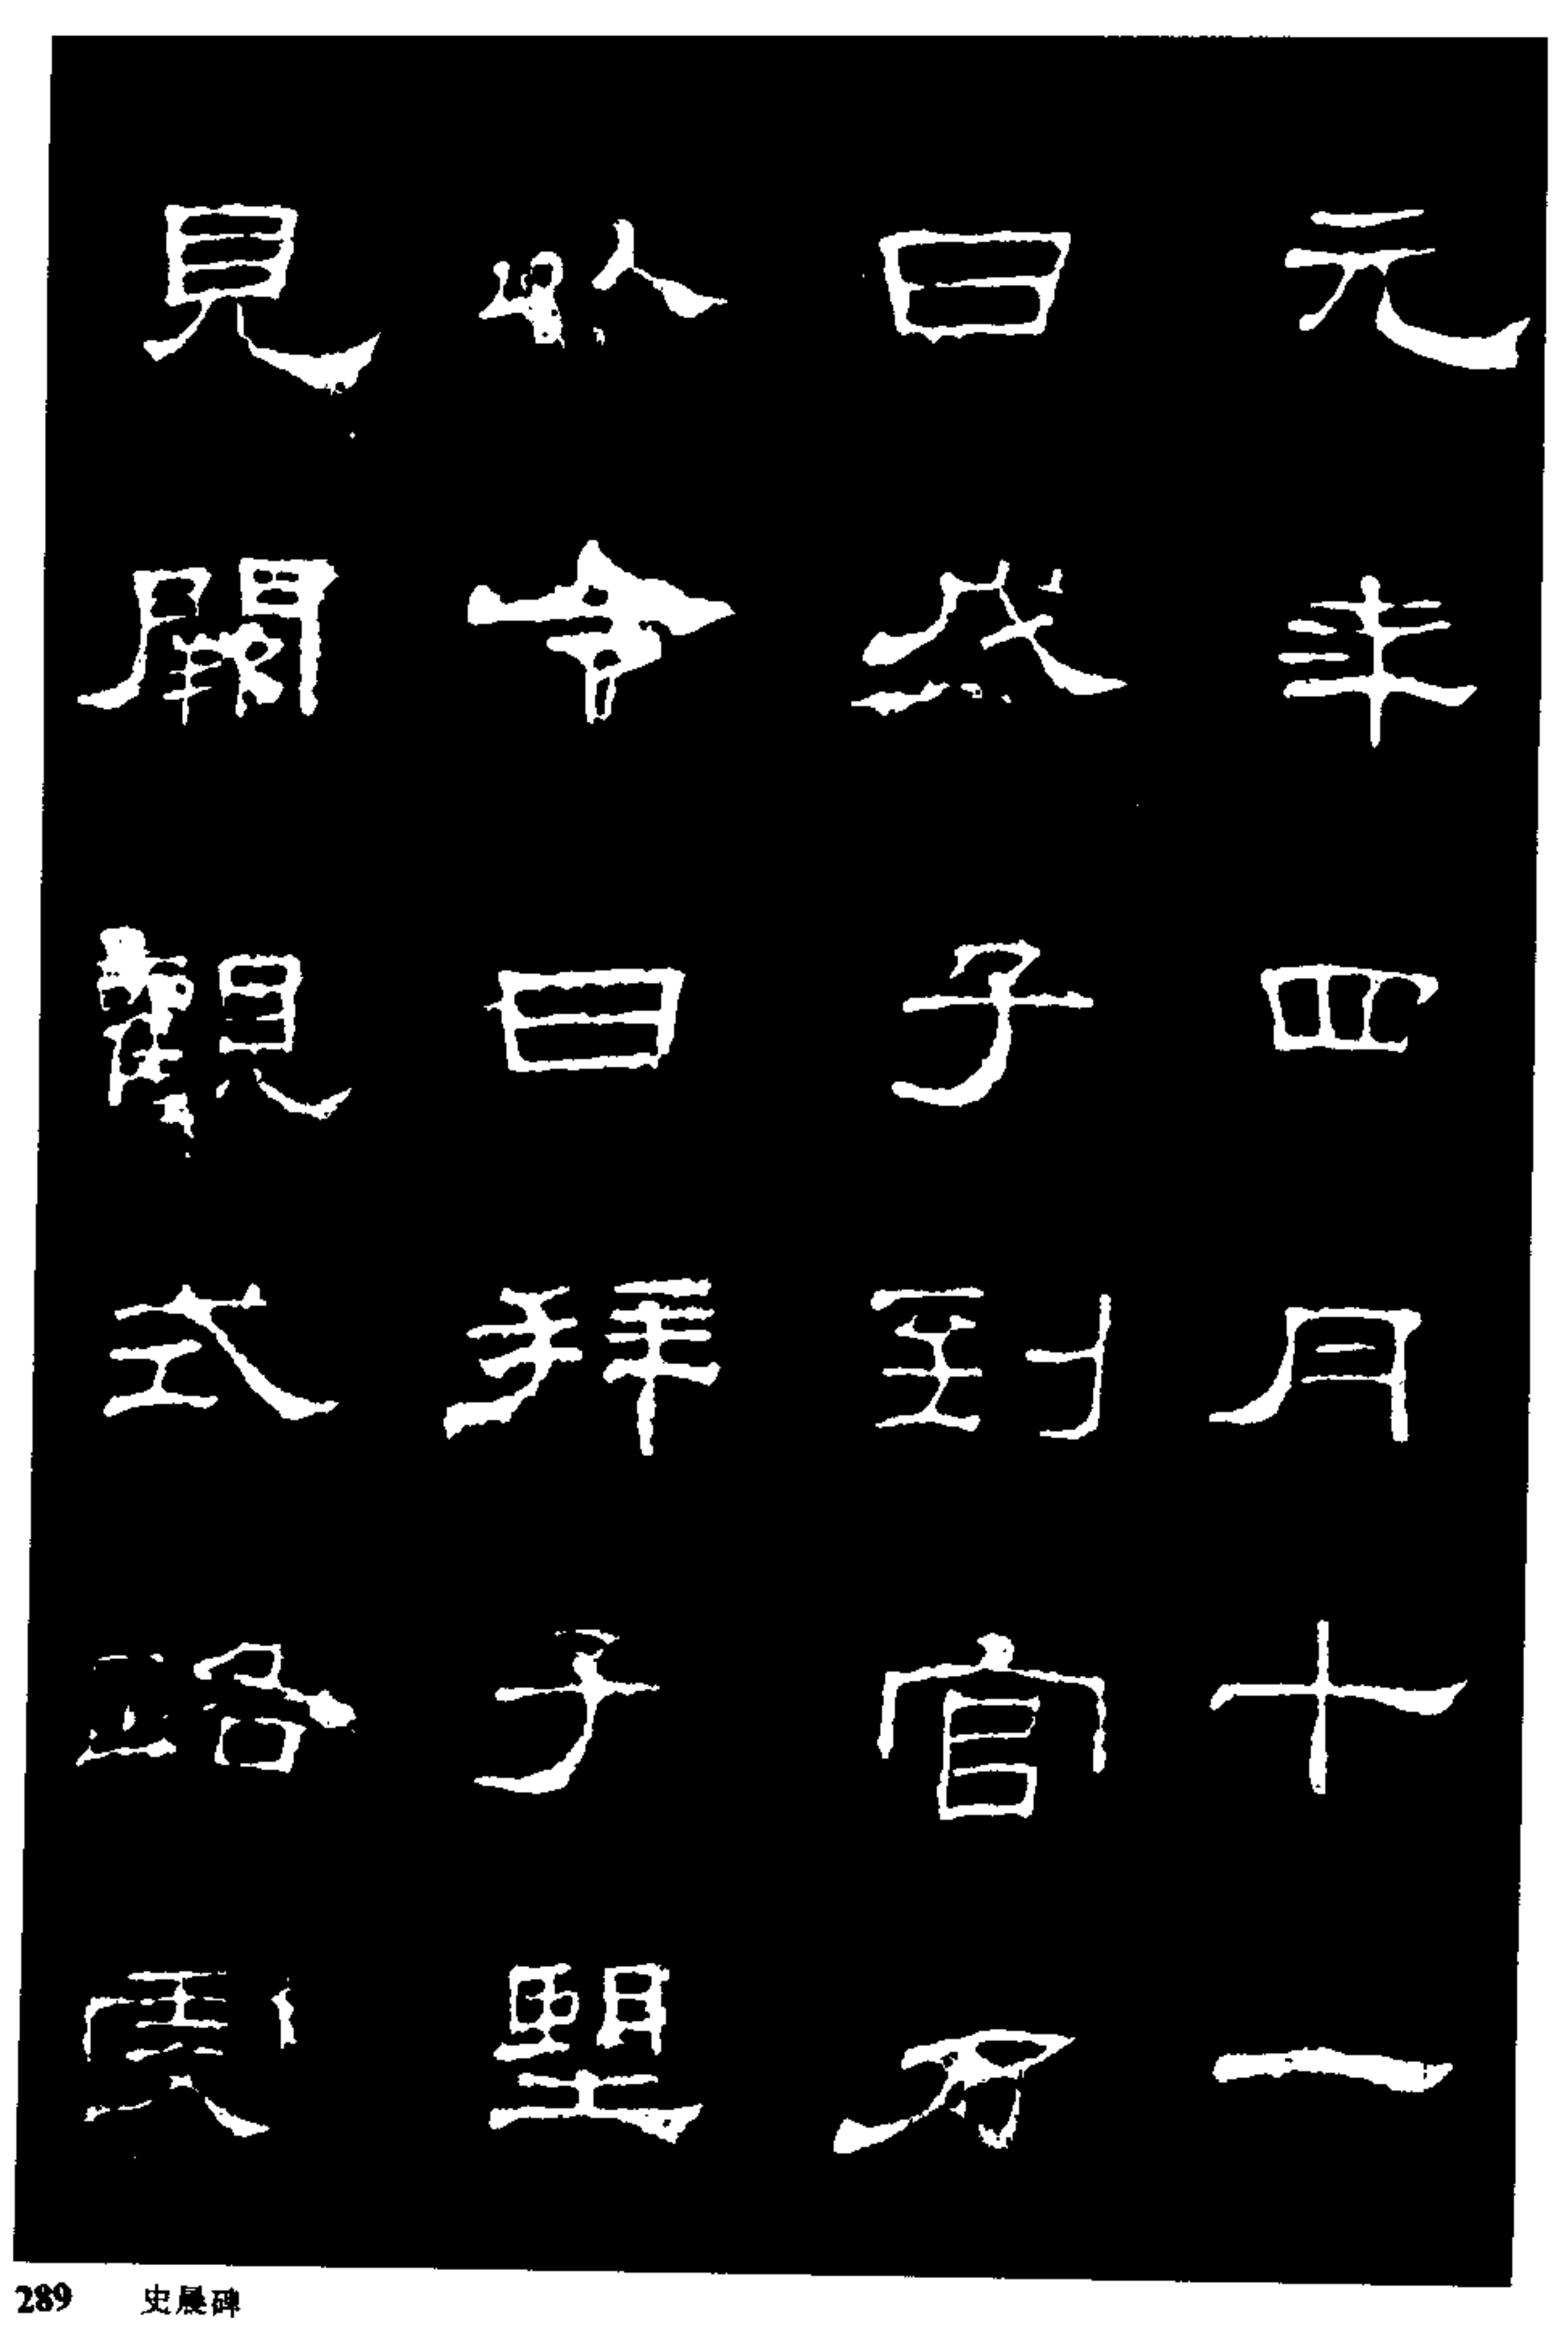 元年四月十一
日戊子到官乃
以令日拜子望
見闕觀式路虔
289 史晨碑